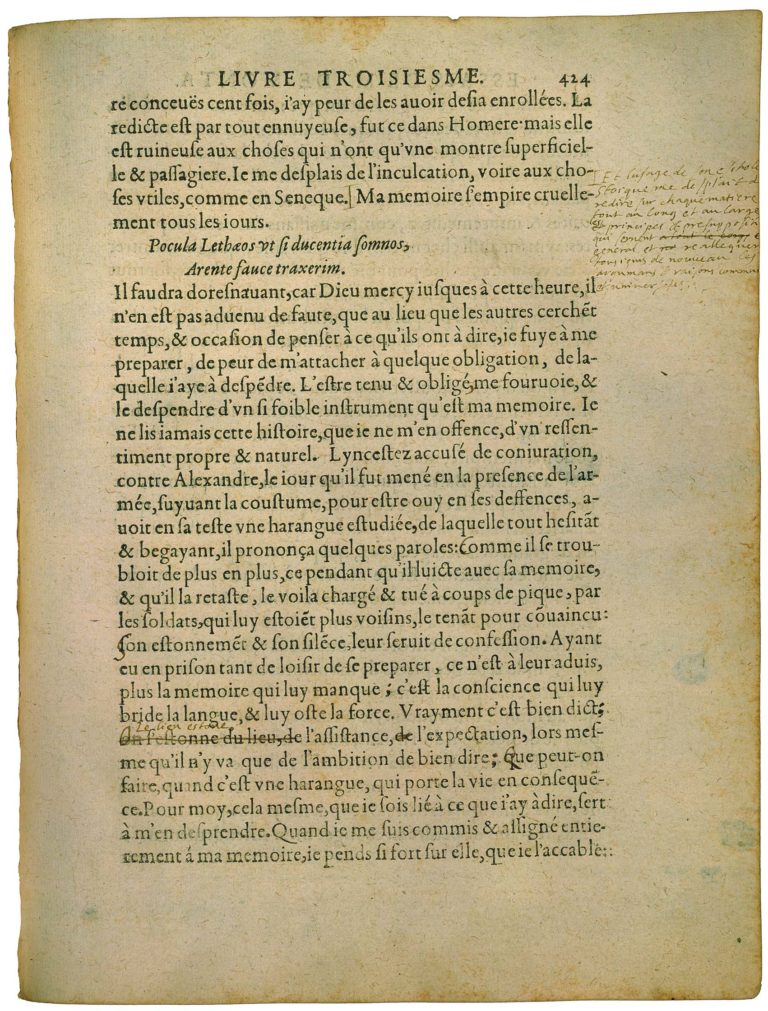 LIVRE TROISIESME. 424
re conceuës cent fois, i'ay peur de les auoir desia enrollées. La
redicte est par tout ennuyeuse, fut ce dans Homere·mais elle
est ruineuse aux choses qui n'ont qu'vne montre superficiel-
le & passagiere. Ie me desplais de l'inculcation, voire aux cho-
ses vtiles, comme en Seneque. Ma memoire s'empire cruelle-
ment tous les iours.
Et l'usage de son eschole
Stoique me desplait de
redire sur chaque matiere
tout au long et au large
les principes et presuppositions
qui servent a tout le long en
general et realleguer
tousiours de nouveau les
argumans et raisons communes
et universeles
Pocula Lethæos vt si ducentia somnos,
Arente fauce traxerim.
Il faudra doresnauant, car Dieu mercy iusques à cette heure, il
n'en est pas aduenu de faute, que au lieu que les autres cerchẽt
temps, & occasion de penser à ce qu'ils ont à dire, ie fuye à me
preparer, de peur de m'attacher à quelque obligation, de la-
quelle i'aye à despẽdre. L'estre tenu & obligé, me fouruoie, &
le despendre d'vn si foible instrument qu'est ma memoire. Ie
ne lis iamais cette histoire, que ie ne m'en offence, d'vn ressen-
timent propre & naturel. Lyncestez accusé de coniuration,
contre Alexandre, le iour qu'il fut mené en la presence de l'ar-
mée, suyuant la coustume, pour estre ouy en ses deffences, a-
uoit en sa teste vne harangue estudiée, de laquelle tout hesitãt
& begayant, il prononça quelques paroles: Comme il se trou-
bloit de plus en plus, ce pendant qu'il luicte auec sa memoire,
& qu'il la retaste, le voila chargé & tué à coups de pique, par
les soldats, qui luy estoiẽt plus voisins, le tenãt pour cõuaincu:
son estonnemẽt & son silẽce, leur seruit de confession. Ayant
eu en prison tant de loisir de se preparer, ce n'est à leur aduis,
plus la memoire qui luy manque; c'est la conscience qui luy
bride la langue, & luy oste la force. Vrayment c'est bien dict;
Le lieu estone
On s'estonne du lieu, de l'assistance, de l'expectation, lors mes-
me qu'il n'y va que de l'ambition de bien dire; Que peut-on
faire, quand c'est vne harangue, qui porte la vie en consequẽ-
ce. Pour moy, cela mesme, que ie sois lié à ce que i'ay à dire, sert
à m'en desprendre. Quand ie me suis commis & assigné entie-
rement á ma memoire, ie pends si fort sur elle, que ie l'accable: